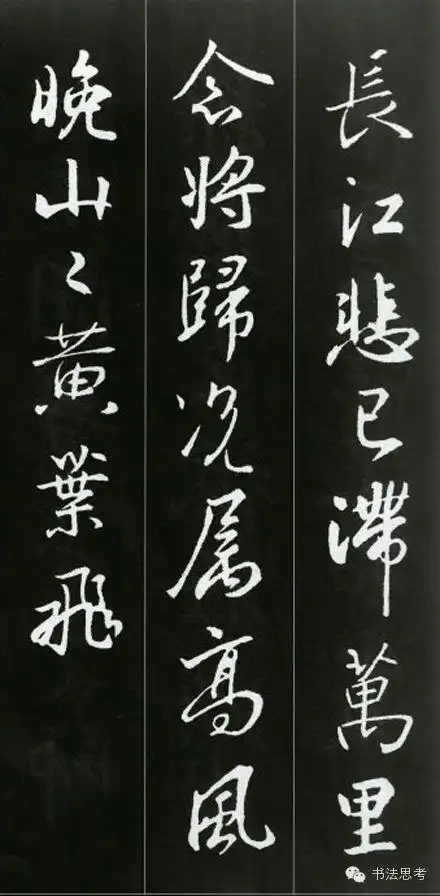 長江悲已滯萬里
念將歸况属高風
晚山〻黄葉飛
书法思考